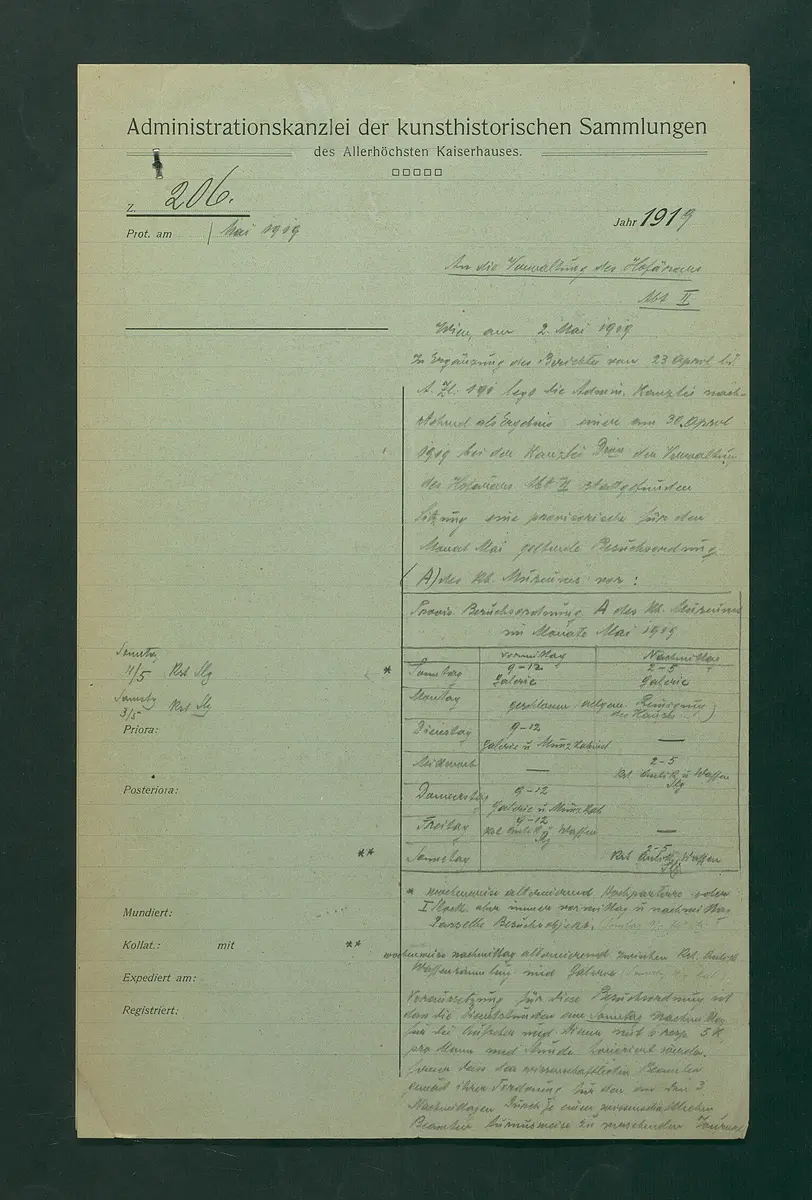 Administrationskanzlei der kunsthistorischen Sammlungen
des Allerhöchsten Kaiserhauses.
Z. 206.
Jahr 1919
Prot. am 1 Mai 1919
An die Verwaltung des Hofärars
Abt II
Wien, am 2. Mai 1919
In Ergänzung des Berichtes vom 23 April
A. Zl: 190 legt die Admin. Kanzlei nach-
stehend als Ergebnis einer am 30. April
1919 bei der Kanzlei der Verwaltung
des Hofärars Abt II stattgefundenen
Sitzung eine provisorische für den
Monat Mai geltende Besuchsordnung
(A) des kh. Museums vor:
Provis. Besuchsordnung A des kh. Museums
im Monate Mai 1919
vormittag Nachmittag
Sonntag
11/5 Kst Slg
* Sonntag 9-12 Galerie 2-5 Galerie
Samstg
3/5 Kst Slg
Montag geschlossen allgem. Reinigung
des Hauses)
Priora:
Dienstag 9-12 Galerie u Münzkabinet —
Mittwoch — 2-5 Kst Antik u Waffen Slg
Posteriora:
Donnerstag 9-12 Galerie u Münz Kab
Freitag 9-12 Kst Antik u Waffen Slg —
** Samstag 2-5 Kst Antik Waffen Slg
* wochenweise alternierend Hochparterre oder
I Stock aber immer vormittag u nachmittag
dasselbe Besuchsobjekt.
Mundiert:
Kollat.: mit
** wochenweise nachmittag alternierend zwischen Kst. Antik
Waffensammlung und Galerie
Expediert am:
Voraussetzung für diese Besuchsordnung ist
Registriert:
dass die Dienststunden am Sonntag Nachmittag
für die Aufseher und Diener mit resp. 5 K
pro Mann und Stunde honoriert werden.
ferner dass den wissenschaftlichen Beamten
gemäß ihrer Forderung für den an den 3
Nachmittagen durch je einen wissenschaftlichen
Beamten turnusweise zu versehenden